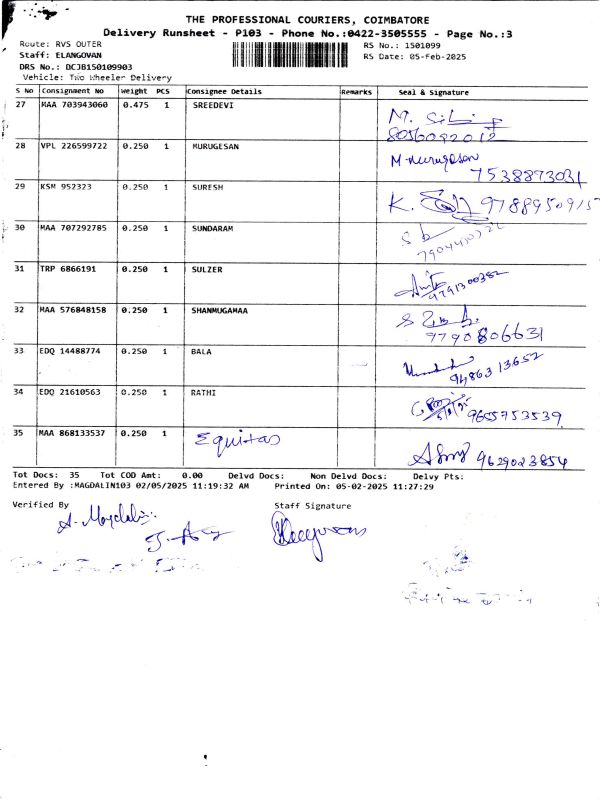 THE PROFESSIONAL COURIERS, COIMBATORE
Delivery Runsheet - P103 - Phone No.:0422-3505555 - Page No.:3
Route: RVS OUTER RS No.: 1501099
Staff: ELANGOVAN RS Date: 05-Feb-2025
DRS No.: DCJB150109903
Vehicle: Two Wheeler Delivery
S No Consignment No Weight PCS Consignee Details Remarks Seal & Signature
27 MAA 703943060 0.475 1 SREEDEVI
8056092012
28 VPL 226599722 0.250 1 MURUGESAN M-murugesan
7538873031
29 KSM 952323 0.250 1 SURESH K.
30 MAA 707292785 0.250 1 SUNDARAM
31 TRP 6866191 0.250 1 SULZER
9791300382
32 MAA 576848158 0.250 1 SHANMUGAMAA
9790806631
33 EDQ 14488774 0.250 1 BALA
9486313652
34 EDQ 21610563 0.250 1 RATHI
9655753539
35 MAA 868133537 0.250 1 Equitas
9629023854
Tot Docs: 35 Tot COD Amt: 0.00 Delvd Docs: Non Delvd Docs: Delvy Pts:
Entered By :MAGDALIN103 02/05/2025 11:19:32 AM Printed On: 05-02-2025 11:27:29
Verified By Staff Signature
A. Magdalin